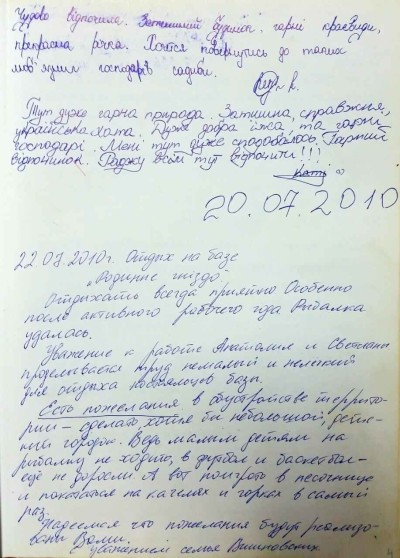 Чудово відпочила. Затишний будинок, гарні краєвиди,
прекрасна річка. Хочется повернутись до таких
господарів садиби.
Тут дуже гарна природа. Затишна, справжня,
українська хата. Дуже добра їжа та гарні
господарі. Мені тут дуже сподобалось. Гарний
відпочинок. Раджу всім тут відпочити!!!
Катя
20.07.2010
22.07.2010г. Отдых на базе
"Родинне гніздо".
Отдыхать всегда приятно Особенно
после активного рабочего года Рыбалка
удалась.
Уважение к работе Анатолия и Светланы
проделывается труд немалый и нелегкий
для отдыха постояльцев базы.
Есть пожелания в обустройстве террито-
рии – сделать хотя бы небольшой, детс-
кий городок. Ведь малым детям на
рыбалку не ходить, в футбол и баскетбол-
еще не доросли. А вот поиграть в песочнице
и покататься на качелях и горках в самый
раз.
Надеемся что пожелания будут реализо-
ваны Вами.
уважением семья